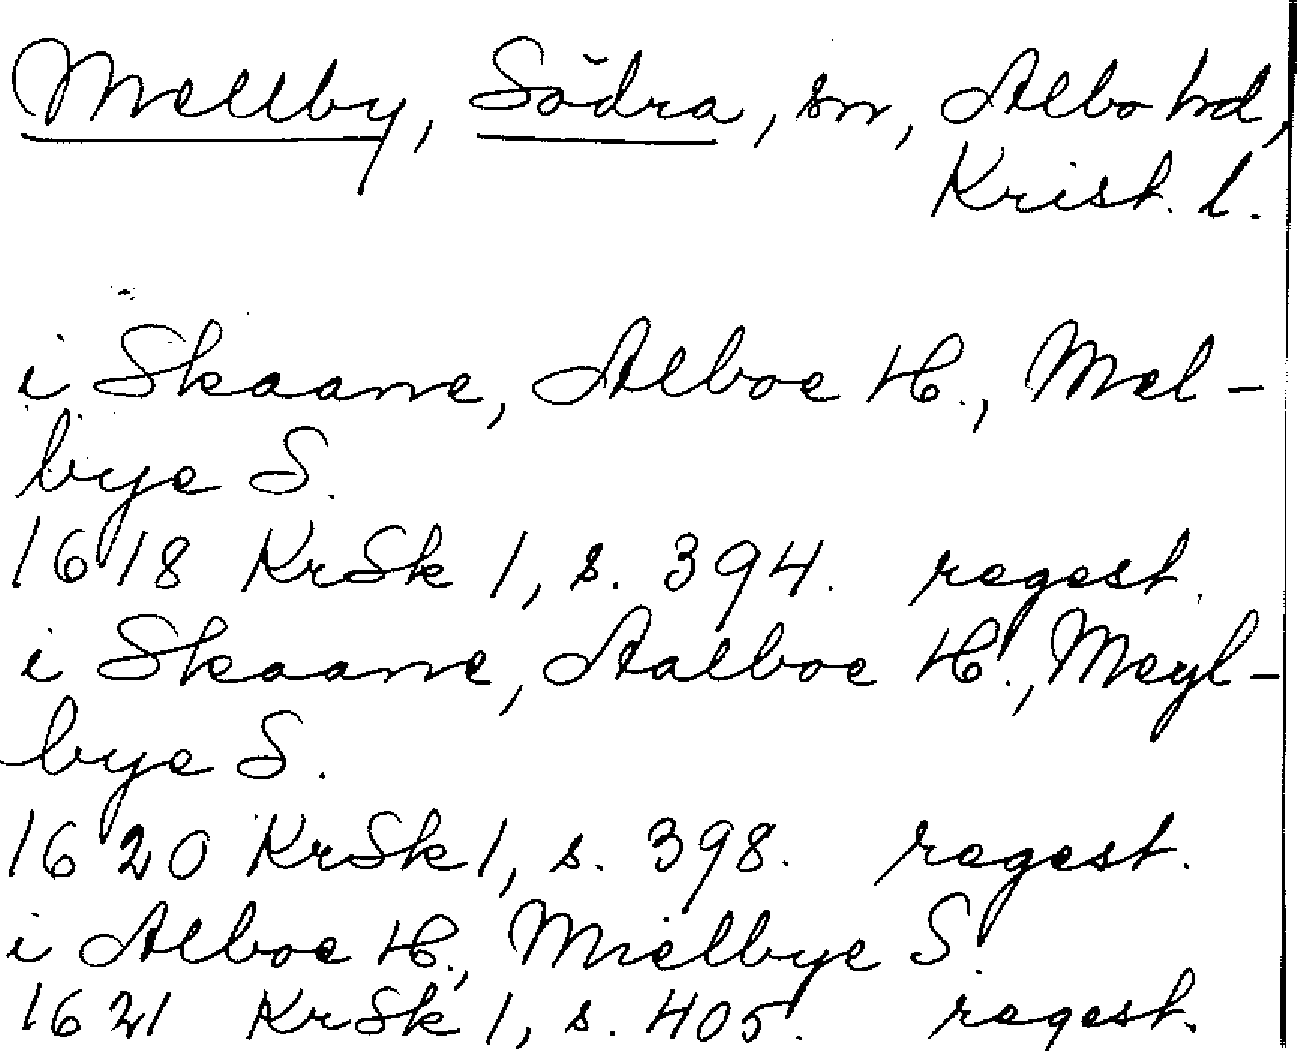 Mellby, Södra, sn, Albo hd,
Krist. l.
i Skaane, Alboe H., Mel-
bye S.
1618 KrSk 1, s. 394. regest.
i Skaane, Aalboe H., Meyl-
bye S.
1620 KrSk 1, s. 398. regest.
i Alboe H., Mielbye S.
1621 KrSk 1, s. 405. regest.